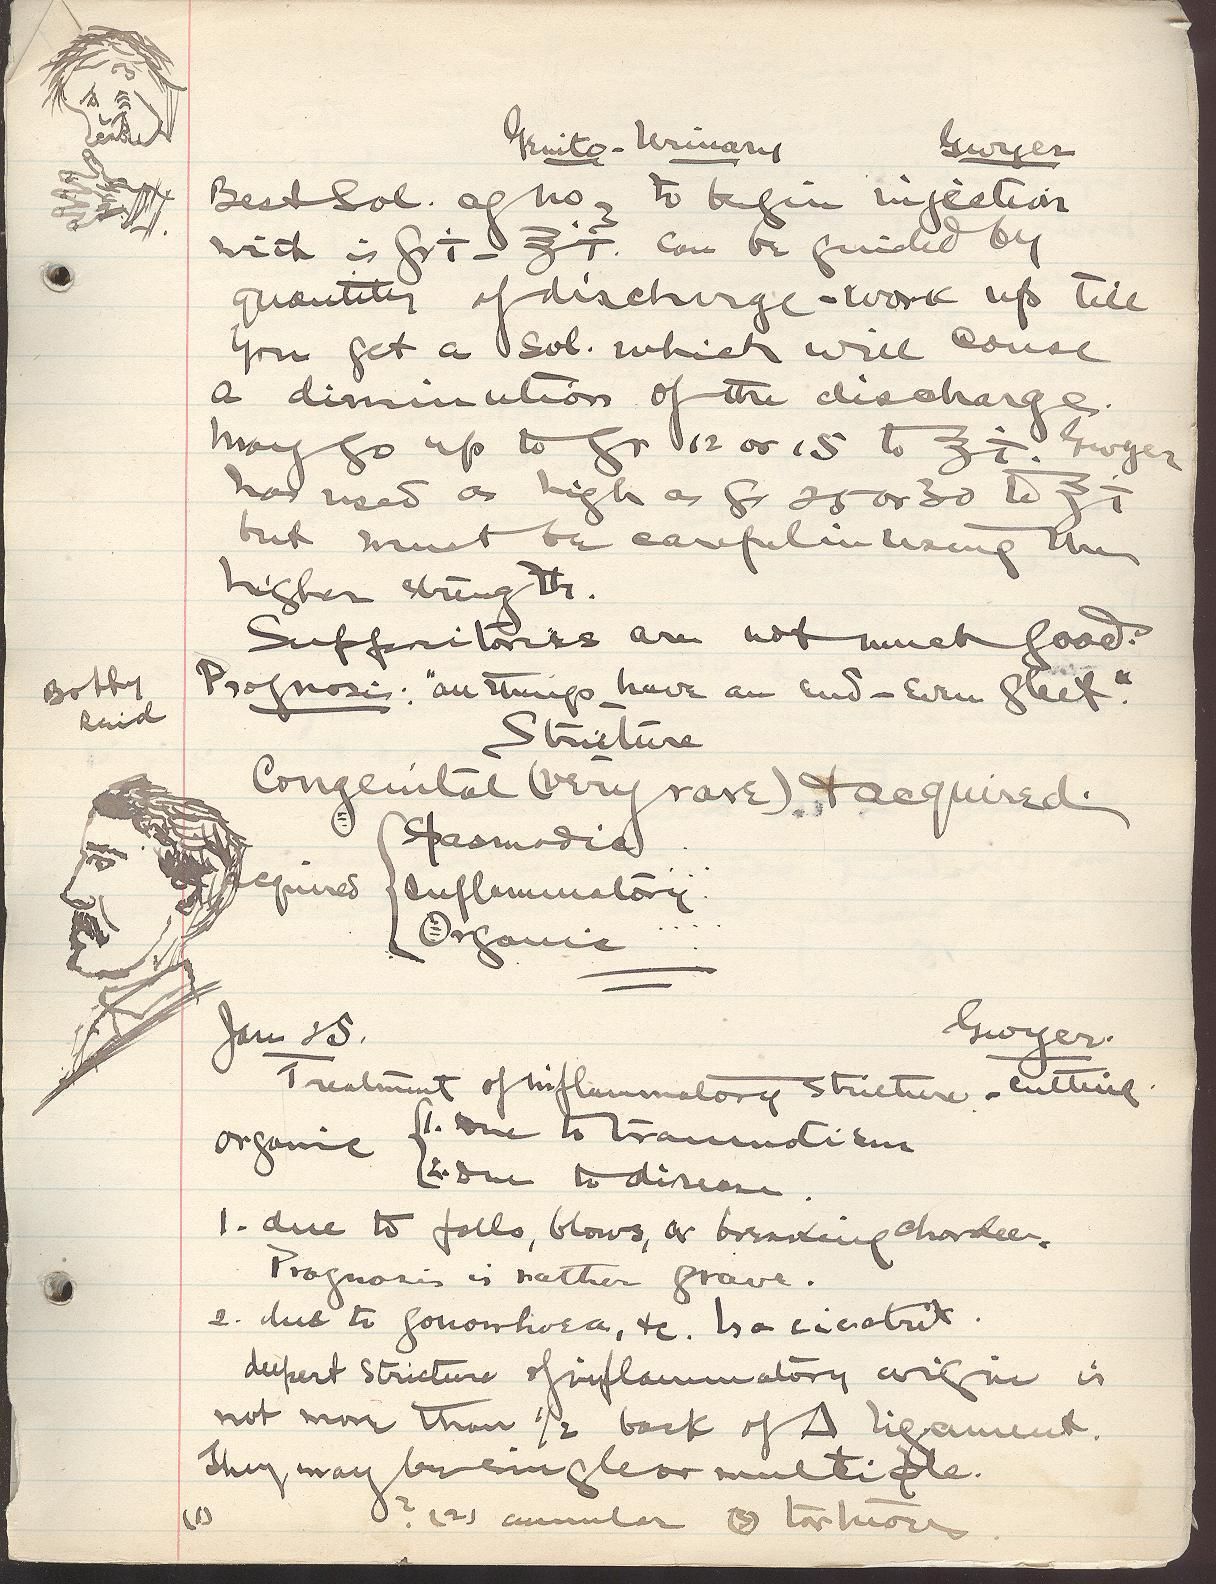 Genito-Urinary Gwyer
Best Sol. ag no3 to begin injection
with is gr ṫ - ℥ ṫ. Can be guided by
quantity of discharge - work up till
you get a sol. which will cause
a diminution of the discharge.
May go up to gr 12 or 15 to ℥ ṫ. Gwyer
has used as high as gr 25 or 30 to ℥ ṫ
but must be careful in using the
higher strength.
Suppositories are not much good.
Prognosis: "all things have an end - even gleet".
Bobby
said
Stricture
Congenital (very rare) & acquired.
Acquired { Spasmodic
Inflammatory
Organic
Jan 25. Gwyer.
Treatment of inflammatory stricture - cutting.
organic { 1. Due to traumatism
2. Due to disease.
1. due to falls, blows, or breaking chordee.
Prognosis is rather grave.
2. due to gonorrhoea, &c. Is a cicatrix.
deepest stricture of inflammatory origin is
not more than 1/2 back of Δ ligament.
They may be single or multiple.
(1) ? (2) annular (3) tortuous.